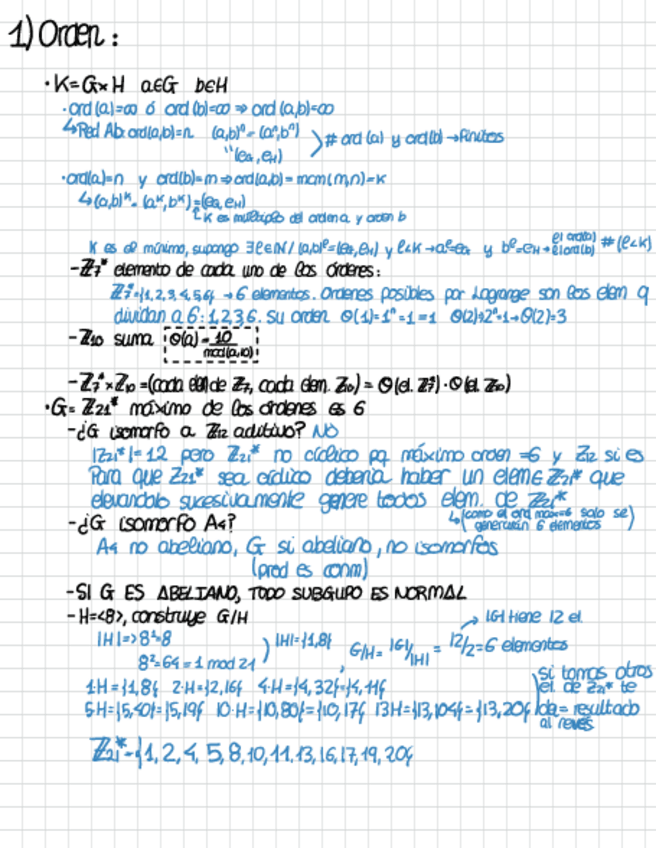 1) Orden:
· K=G×H a∈G b∈H
· ord(a)=∞ ó ord(b)=∞ ⇒ ord(a,b)=∞
↳ Red Ab: ord(a,b)=n (a,b)ⁿ=(aⁿ,bⁿ) # ord(a) y ord(b) → Finitos
"(e_G, e_H)
· ord(a)=n y ord(b)=m ⇒ ord(a,b)=mcm(m,n)=K
↳ (a,b)ᴷ=(aᴷ,bᴷ)=(e_G,e_H)
K es múltiplo del orden a y orden b
K es el mínimo, supongo ∃ℓ∈ℕ/(a,b)^ℓ=(e_G,e_H) y ℓ<K → a^ℓ=e_G y b^ℓ=e_H → el ord(a) ℓ ord(b) # (ℓ<K)
- ℤ₇* elemento de cada uno de los órdenes:
ℤ₇*={1,2,3,4,5,6} → 6 elementos. Ordenes posibles por Lagrange son los elem q
dividan a 6: 1,2,3,6. su orden Θ(1)=1ⁿ=1=1 Θ(2)=2ⁿ=1→Θ(2)=3
- ℤ₁₀ suma Θ(a)=10/mcd(a,10)
- ℤ₇*×ℤ₁₀=(cada el de ℤ₇, cada elem. ℤ₁₀)=Θ(el. ℤ₇*)·Θ(el. ℤ₁₀)
· G=ℤ₂₁* máximo de los órdenes es 6
- ¿G isomorfo a ℤ₁₂ aditivo? NO
|ℤ₂₁*|=12 pero ℤ₂₁* no cíclico pq máximo orden =6 y ℤ₁₂ si es
Para que ℤ₂₁* sea cíclico debería haber un elem ∈ ℤ₂₁* que
elevandolo sucesivamente genere todos elem. de ℤ₂₁*
↳ (como el ord max=6 solo se generarían 6 elementos)
- ¿G isomorfo A₄?
A₄ no abeliano, G si abeliano, no isomorfos
(prod es conm)
- SI G ES ABELIANO, TODO SUBGUPO ES NORMAL
- H=<8>, construye G/H
→ |G| tiene 12 el.
|H|=>8¹=8
8²=64=1 mod 21
) |H|={1,8} , G/H=|G|/|H|=12/2=6 elementos
1·H={1,8} 2·H={2,16} 4·H={4,32}={4,11}
5·H={5,40}={5,19} 10·H={10,80}={10,17} 13H={13,104}={13,20}
si tomas otros
el. de ℤ₂₁* te
da = resultado
al revés
ℤ₂₁*={1,2,4,5,8,10,11,13,16,17,19,20}